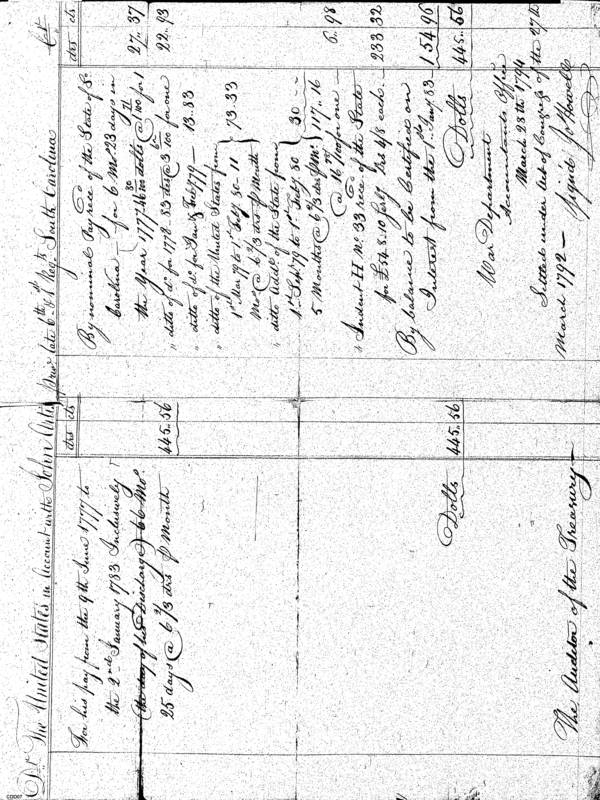 Dr. The United States in Account with John Arty Priv. late 6th & 1st Regts. South Carolina Cr.
drs cts
For his pay from the 9th June 1777 to
the 2nd January 1783 Inclusively
(the day of his discharge) 66 Mos.
25 days @ 6 2/3 drs ⅌ Month
445.56
Dolls 445.56
The Auditor of the Treasury
drs cts
By nominal Pay rece'd of the State of So.
Carolina for 6 Mos. 23 days in
the Year 1777 dolls @ 100 for 1
27.37
" ditto of do. for 1778. 83 drs @ 100 for one
22.93
" ditto of do. for Jany & Feby 1779 — 13.83
" ditto of the United States from
1st Mar 79 to 1st Feby 80 - 11
Mos. @ 6 2/3 drs ⅌ Month
73.33
" ditto Addl. of the State from
1st Sep 79 to 1st Feby 80
5 Months @ 6 2/3 drs ⅌ Mo.
30
117..16
@ 16 /100 for one
6.98
" Indent H No. 33 rece'd of the State
for £54.8.10 Sterlg drs 4/8 each
233.32
By balance to be Certified on
Interest from the 1st Jany 83
154.96
Dolls 445.56
War Department
Accountants Office
March 28th 1794
Settled under Act of Congress of the 27th
March 1792 — Signed Jo Howell
CDD07